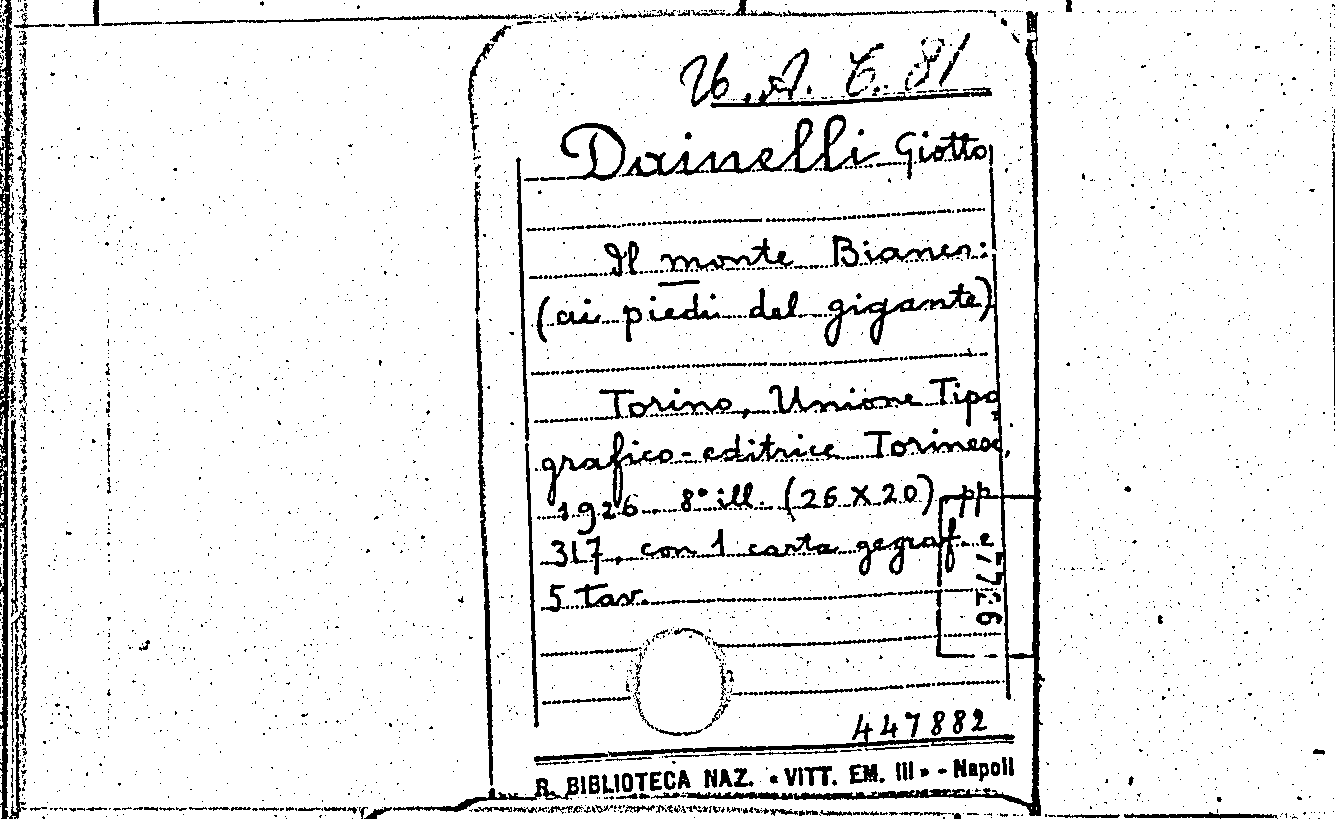 V. A. C. 81
Dainelli Giotto
Il monte Bianco:
(ai piedi del gigante)
Torino, Unione Tipo
grafico-editrice Torinese,
1926. 8° ill. (26 X 20) pp
317, con 1 carta gegraf. e
5 tav.
7726
447882
R. BIBLIOTECA NAZ. « VITT. EM. III » - Napoli